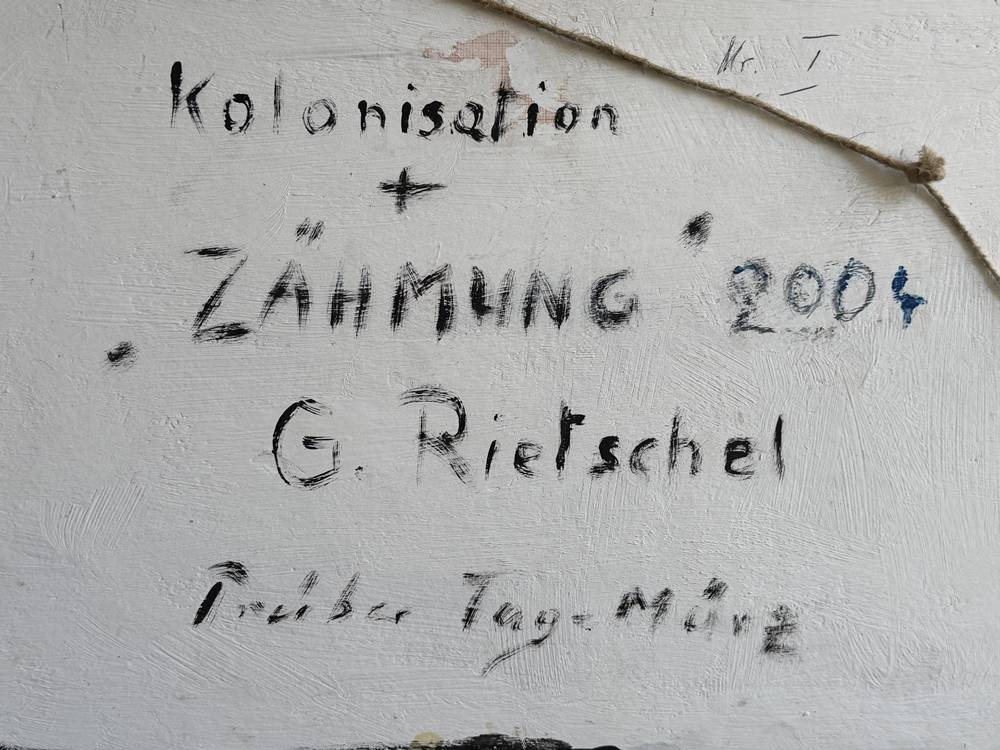 Nr. I
Kolonisation
+
ZÄHMUNG 2004
G. Rietschel
Trüber Tag - März